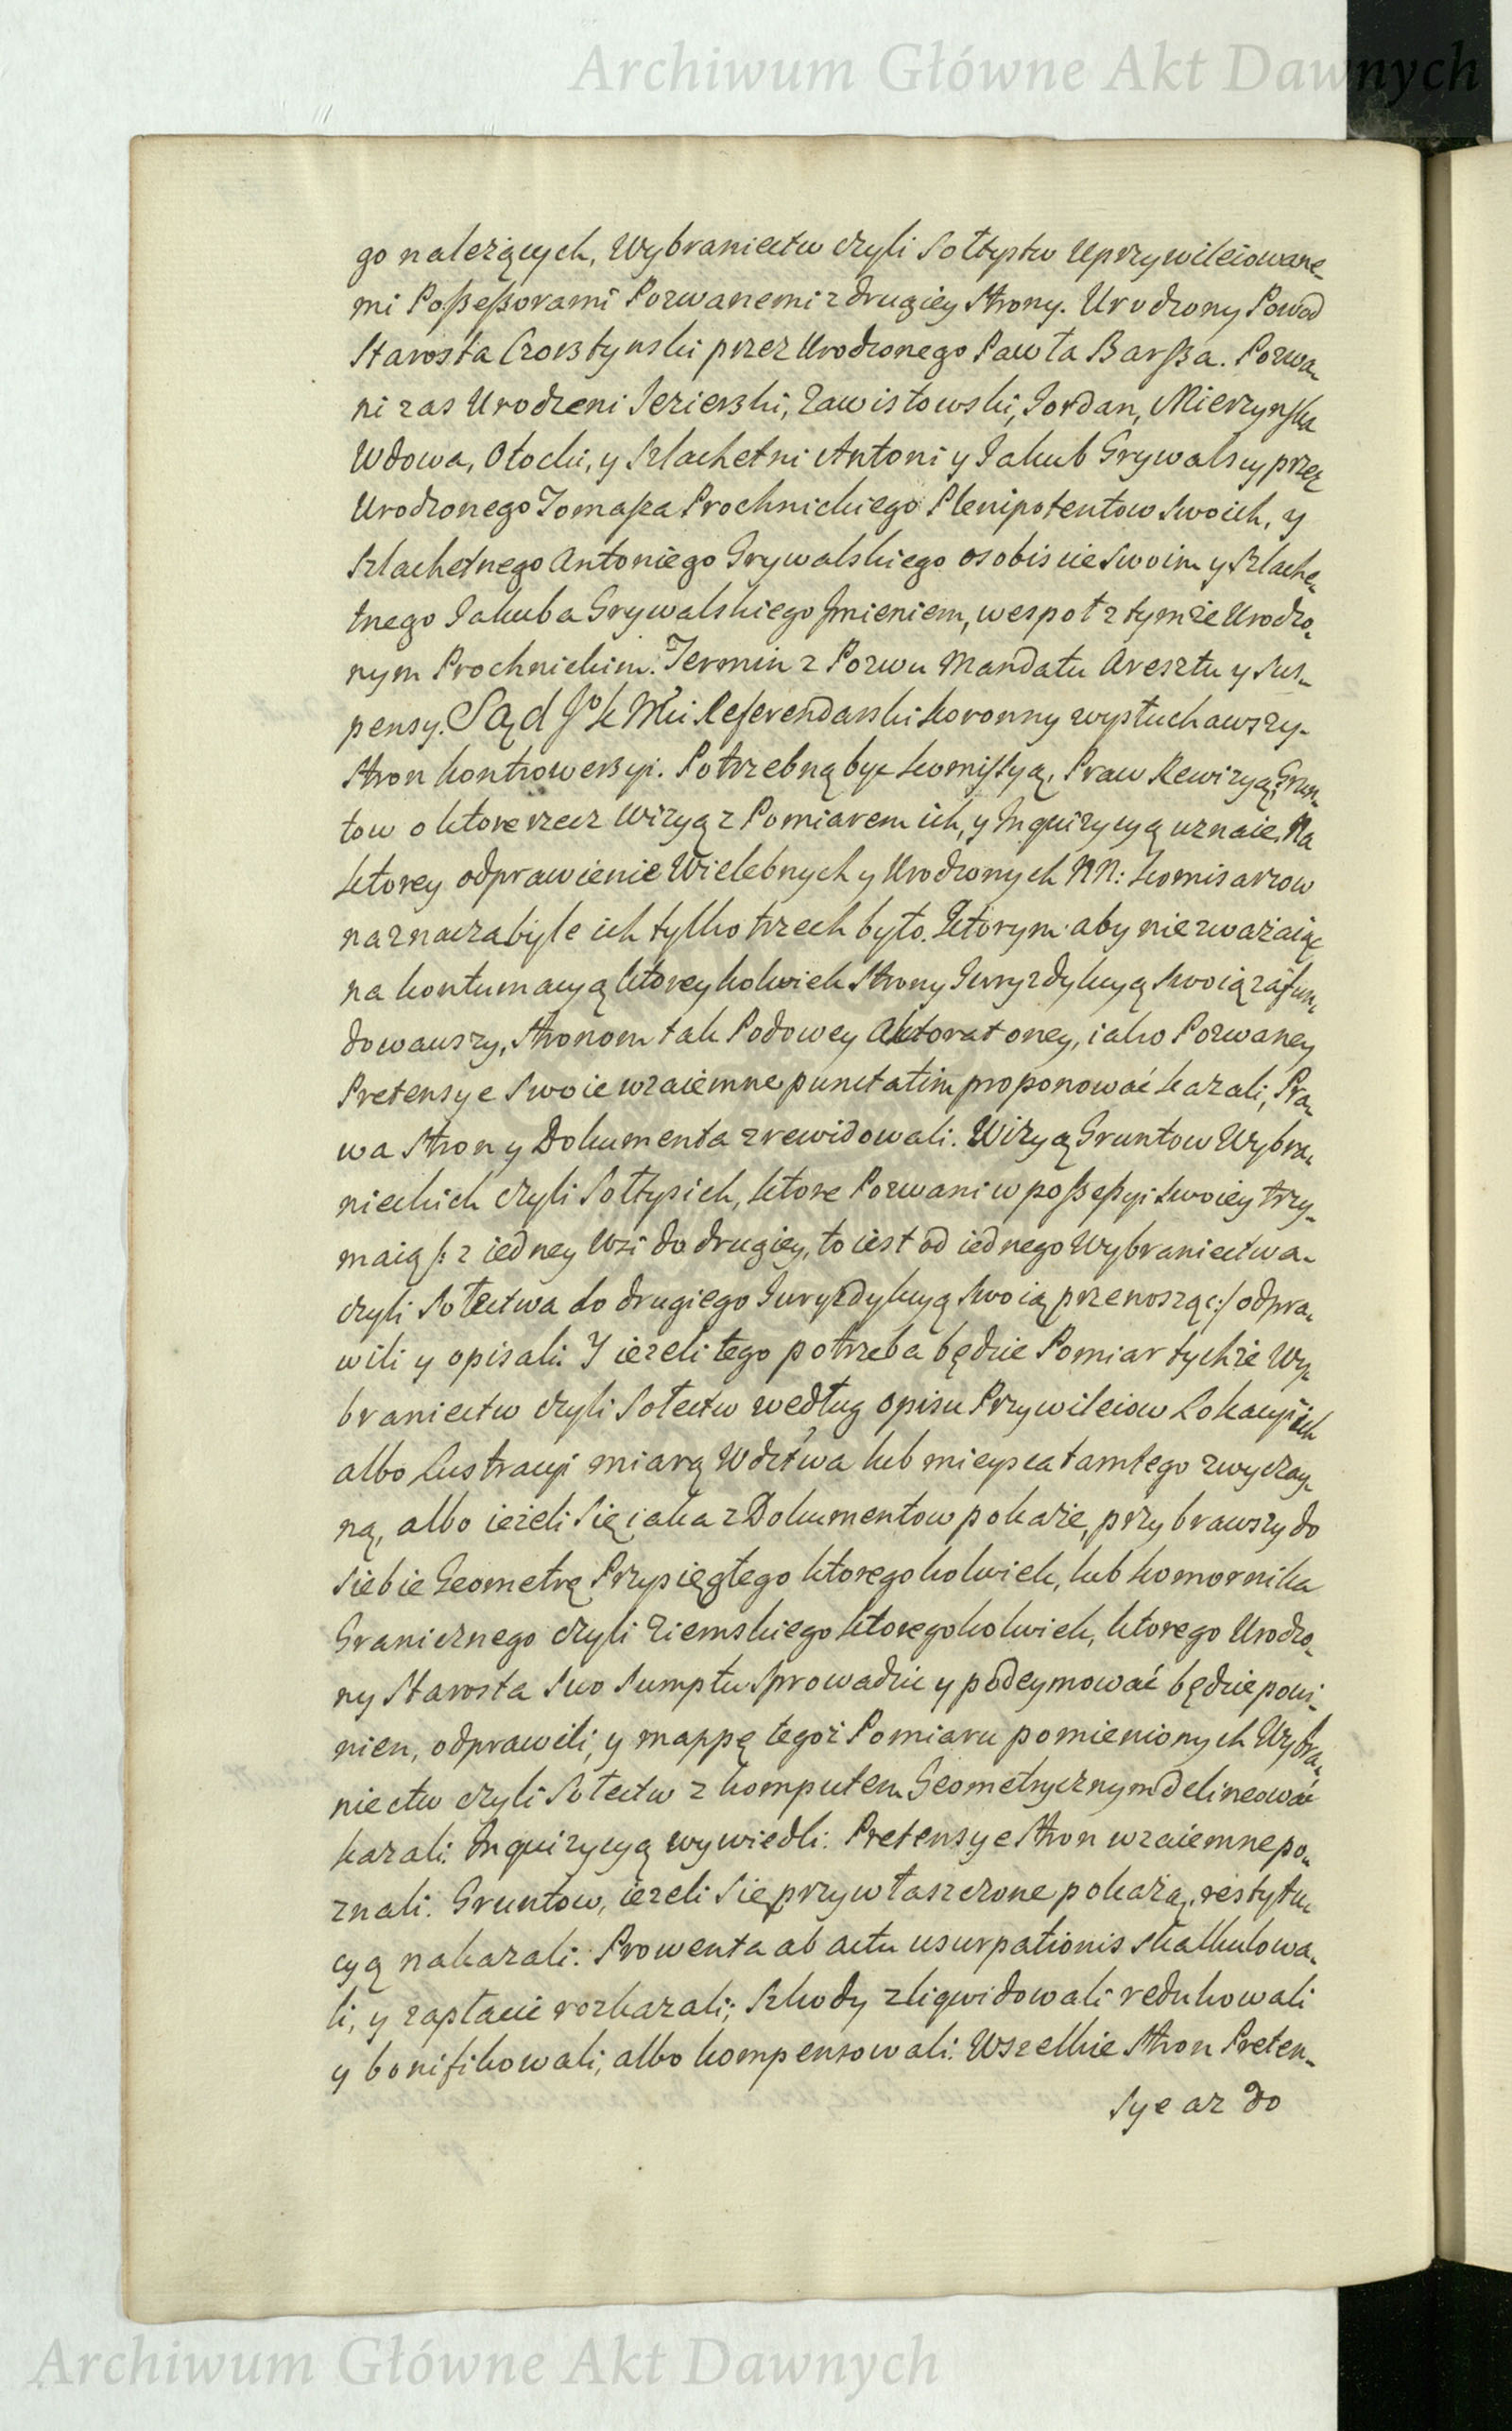 Archiwum Główne Akt Dawnych
go należących, Wybraniectw czyli Sołtystw Uprzywileiowane-
mi Poßeßorami Pozwanemi z drugiey Strony. Urodzony Powod
Starosta Czorsztynski przez Urodzonego Pawła Barßza. Pozwa-
ni zas Urodzeni Jezierski, Zawistowski, Jordan, Mierzynska
Wdowa, Otocki, y Szlachetni Antoni y Jakub Grywalscy przez
Urodzonego Tomaßza Prochnickiego Plenipotentow Swoich, y
Szlachetnego Antoniego Grywalskiego osobiscie Swoim y Szlache-
tnego Jakuba Grywalskiego Jmieniem, wespoł z tymże Urodzo-
nym Prochnickim. Termin z Pozwu Mandatu Aresztu y Sus-
pensy. Sąd Jº K Mci Referendarski Koronny wysłuchawszy
Stron kontrowersyi. Potrzebną być Kommissyą, Praw Rewizyą, Grun-
tow o ktore rzecz Wizyą z Pomiarem ich, y Inquizycyą uznaie. Na
ktorey odprawienie Wielebnych y Urodzonych NN: Komisarzow
naznacza byle ich tylko trzech było. Ktorym aby nie zważaiąc
na kontumacyą ktoreykolwiek Strony Juryzdykcyą Swoią zafun-
dowawszy, Stronom tak Podowey Aktoratoney, iako Pozwaney
Pretensye Swoie wzaiemne punctatim proponować kazali, Pra-
wa Stron y Dokumenta zrewidowali. Wizyą Gruntow Wybra-
nieckich czyli Sołtysich, ktore Pozwani w poßeßyi Swoiey trzy-
maią /: z iedney Wsi do drugiey, to iest od iednego Wybraniectwa
czyli Sołectwa do drugiego Juryzdykcyą Swoią przenosząc :/ odpra-
wili y opisali. Y ieżeli tego potrzeba będzie Pomiar tychże Wy-
braniectw czyli Sołectw według opisu Przywileiow Lokacyinich
albo Lustracyi miarą Wdztwa lub mieysca tamtego zwyczay-
ną, albo ieżeli się iaka z Dokumentow pokaże, przybrawszy do
siebie Geometrę Przysięgłego ktoregokolwiek, lub Komornika
Granicznego czyli Ziemskiego ktoregokolwiek, ktorego Urodzo-
ny Starosta Suo Sumptu Sprowadzic y podeymować będzie powi-
nien, odprawili, y mappę tegoż Pomiaru pomienionych Wybra-
niectw czyli Sołectw z komputem Geometrycznym delineować
kazali. Inquizycyą wywiedli. Pretensye Stron wzaiemne po-
znali. Gruntow, ieżeli się przywłaszczone pokażą, restytu-
cyą nakazali. Prowenta ab actu usurpationis skalkulowa-
li, y zapłacic rozkazali; Szkody zliqwidowali redukowali
y bonifikowali, albo kompensowali. Wszelkie Stron Preten-
sye aż do
Archiwum Główne Akt Dawnych